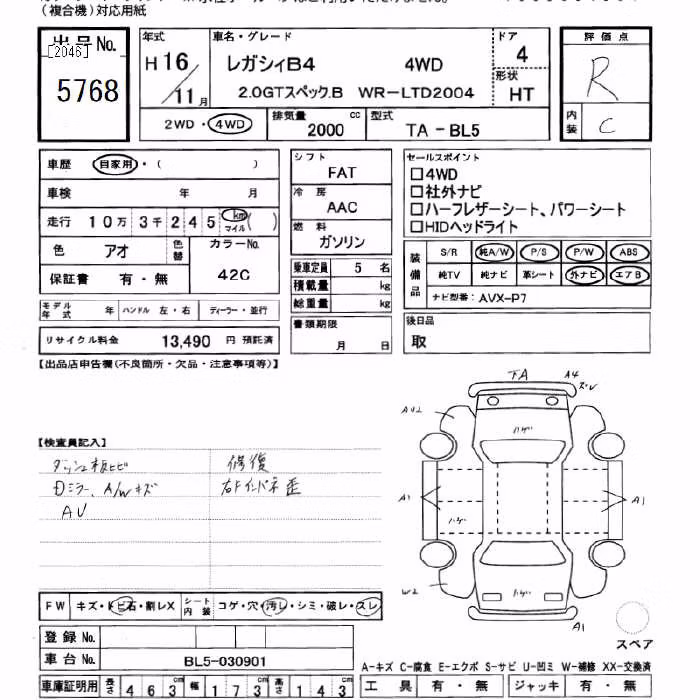 (複合機)対応用紙
出品No.
[2046]
5768
年式
H16/11月
車名・グレード
レガシィB4 4WD
2.0GTスペック.B WR-LTD2004
ドア
4
形状
HT
評価点
R
内装
C
2WD・4WD
排気量
2000 cc
型式
TA-BL5
車歴 自家用・( )
車検 年 月
走行 10万3千245 km マイル ( )
色 アオ
色替
カラーNo.
42C
保証書 有・無
モデル年式 年 ハンドル 左・右 ディーラー・並行
リサイクル料金 13,490 円 預託済
シフト
FAT
冷房
AAC
燃料
ガソリン
乗車定員 5 名
積載量 kg
総重量 kg
書類期限
月 日
セールスポイント
□4WD
□社外ナビ
□ハーフレザーシート、パワーシート
□HIDヘッドライト
装備品
S/R 純A/W P/S P/W ABS
純TV 純ナビ 革シート 外ナビ エアB
ナビ型番: AVX-P7
後日品
取
【出品店申告欄(不良箇所・欠品・注意事項等)】
【検査員記入】
ダッシュ板ヒビ
Dミラー、A/Wキズ
AU
修復
右Fインパネ歪
TA
A4
ズレ
AU2
ハゲ
A1
A1
ハゲ
W2
ハゲ
A1
スペア
FW キズ・トビ石・割レX
シート内装 コゲ・穴・汚レ・シミ・破レ・スレ
登録No.
車台No. BL5-030901
車庫証明用 長さ 463cm 幅 173cm 高さ 143cm
A-キズ C-腐食 E-エクボ S-サビ U-凹ミ W-補修 XX-交換済
工具 有・無 ジャッキ 有・無